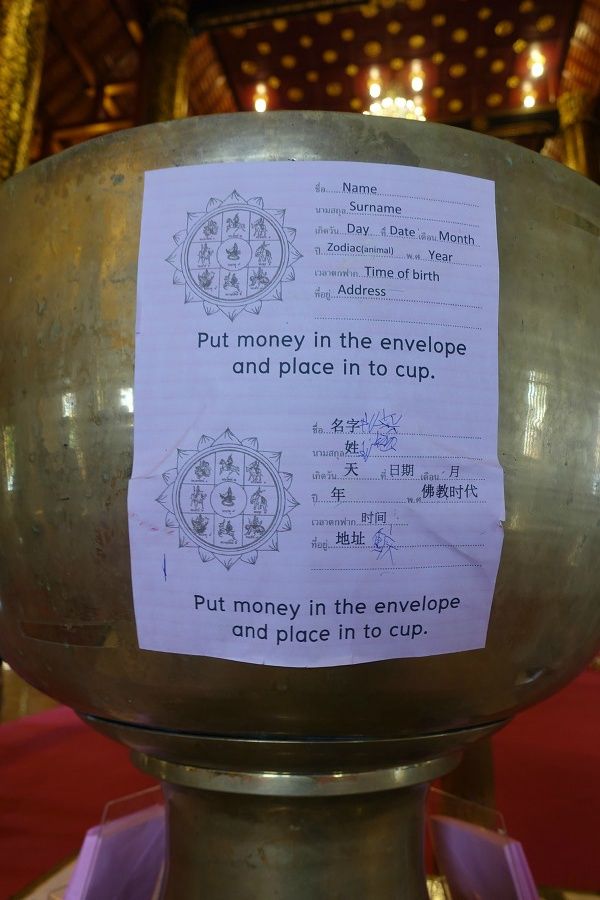 ชื่อ Name
นามสกุล Surname
เกิดวัน Day ที่ Date เดือน Month
ปี Zodiac(animal) พ.ศ. Year
เวลาตกฟาก Time of birth
ที่อยู่ Address
Put money in the envelope
and place in to cup.
ชื่อ 名字
นามสกุล 姓
เกิดวัน 天 ที่ 日期 เดือน 月
ปี 年 พ.ศ. 佛教时代
เวลาตกฟาก 时间
ที่อยู่ 地址
Put money in the envelope
and place in to cup.